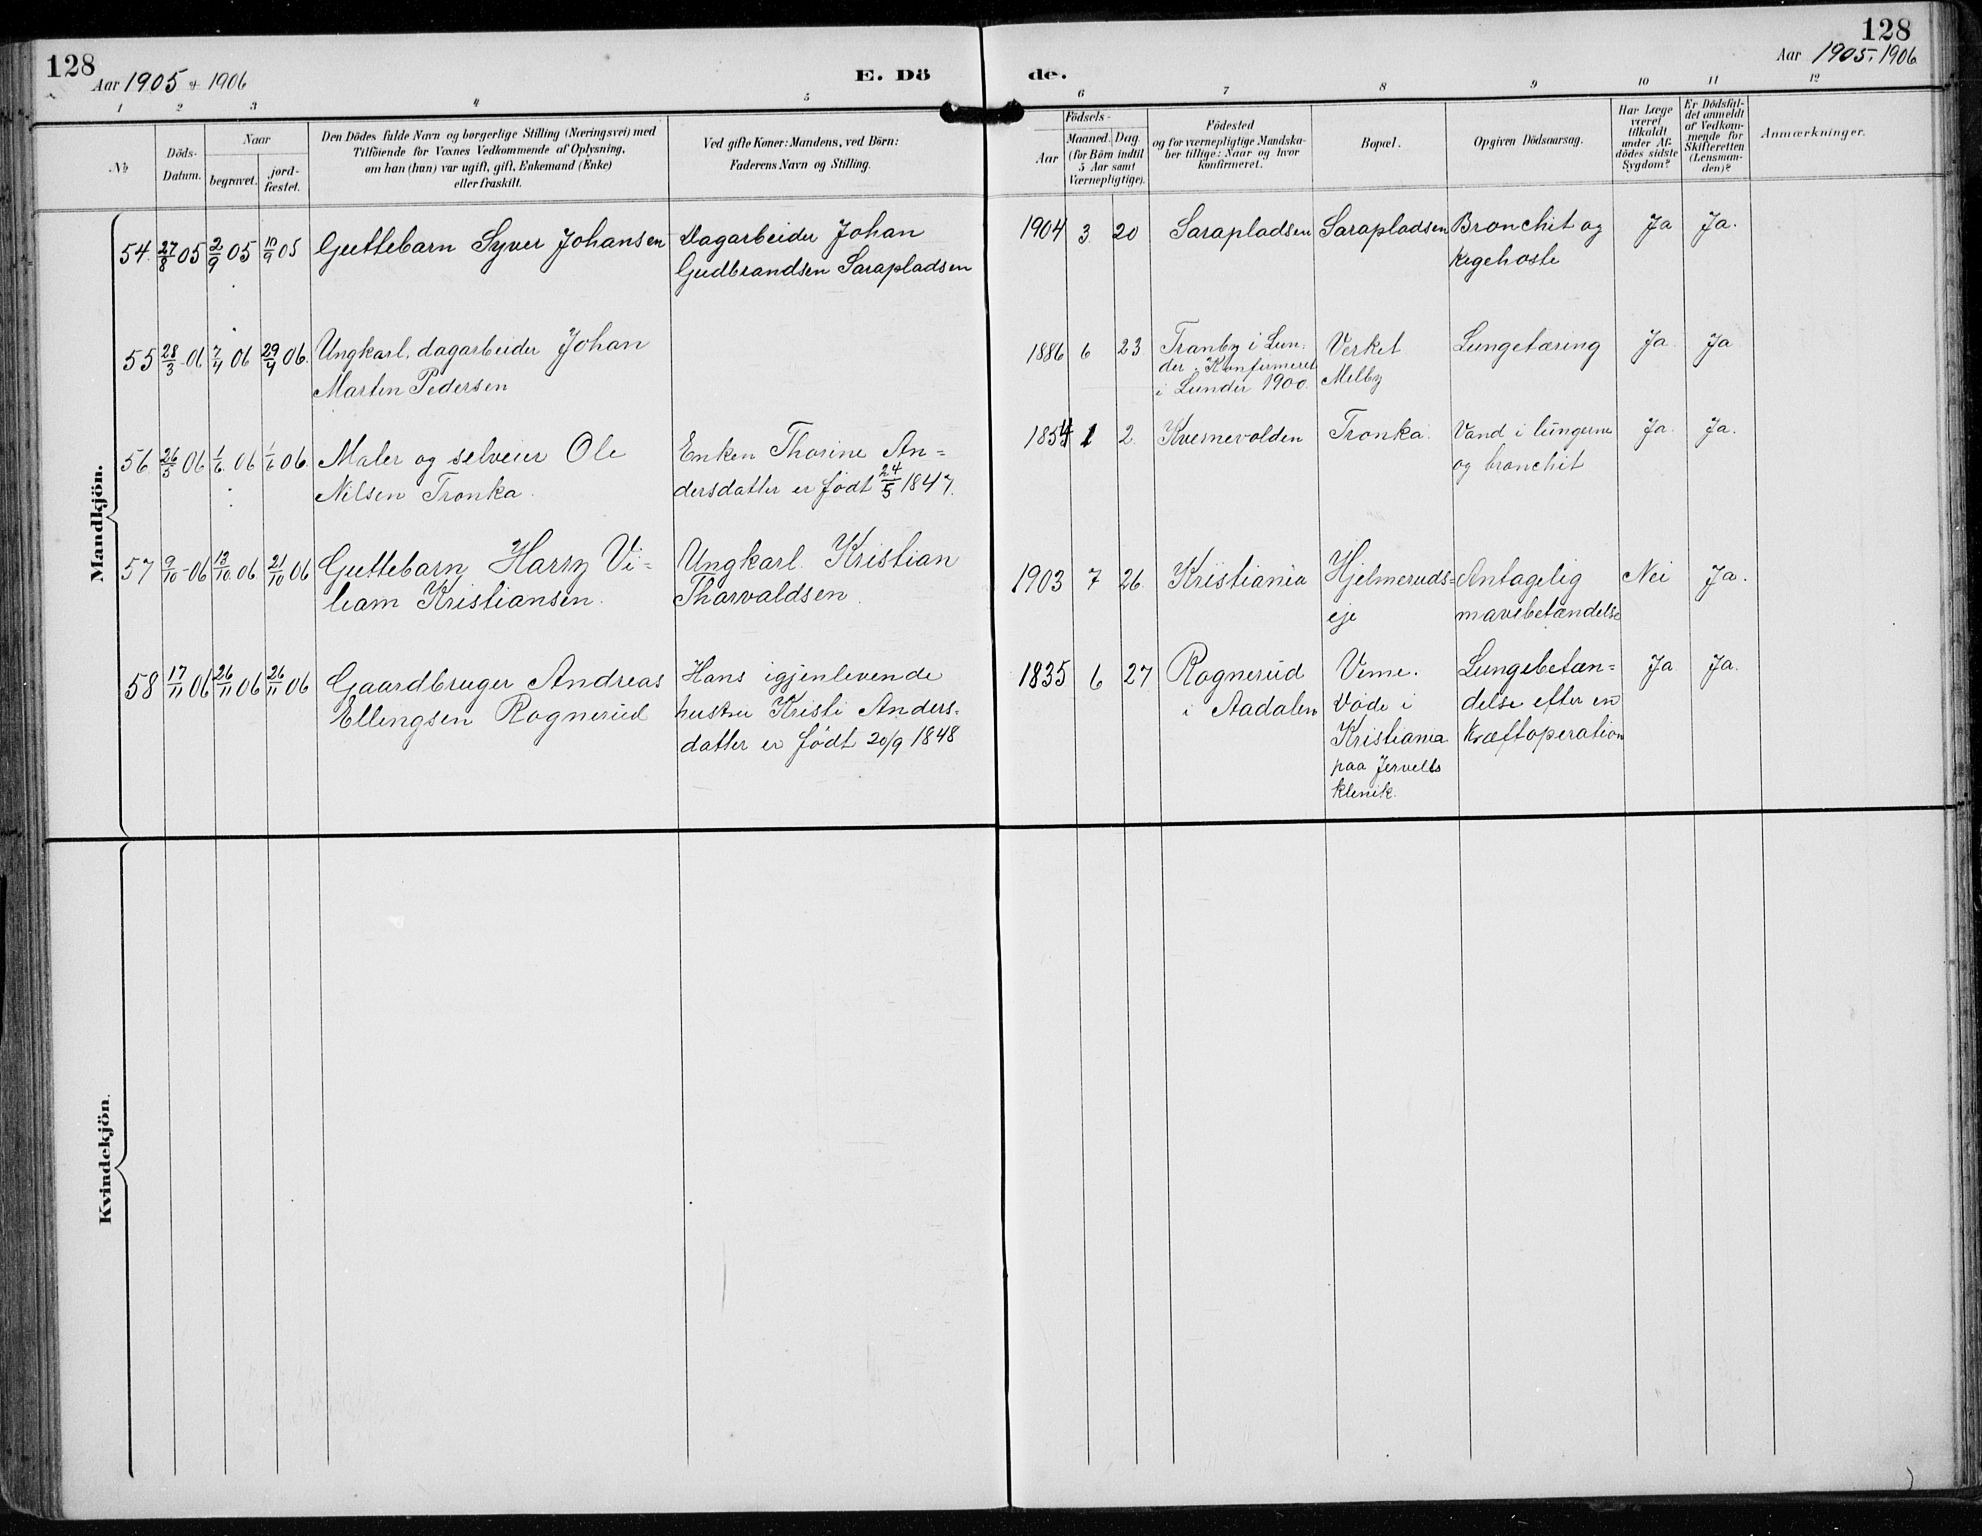 128
Aar 1905 & 1906
E. Dö
de.
128
Aar 1905. 1906
1 2 3 4 5 6 7 8 9 10 11 12
No
Döds-
Datum.
Naar
begravet.
jord-
fæstet.
Den Dödes fulde Navn og borgerlige Stilling (Næringsvei) med
Tilföiende for Voxnes Vedkommende af Oplysning,
om han (hun) var ugift, gift, Enkemand (Enke)
eller fraskilt.
Ved gifte Koner: Mandens, ved Börn:
Faderens Navn og Stilling.
Födsels-
Aar
Maaned. Dag.
(for Börn indtil
5 Aar samt
Værnepligtige).
Födested
og for værnepligtige Mandska-
ber tillige: Naar og hvor
konfirmeret.
Bopæl.
Opgiven Dödsaarsag.
Har Læge
været
tilkaldt
under Af-
dödes sidste
Sygdom?
Er Dödsfal-
det anmeldt
af Vedkom-
mende for
Skifteretten
(Lensman-
den)?
Anmærkninger.
Mandkjön.
54. 27/8 05 2/9 05 10/9 05 Guttebarn Syver Johansen
Dagarbeider Johan
Gudbrandsen Sarapladsen
1904 3 20 Sarapladsen Sarapladsen Bronchit og
kigehoste
Ja Ja.
55 28/3 -06 7/4 06 29/4 06. Ungkarl, dagarbeider Johan
Martin Pedersen
1886 6 23 Tranby i Lun-
der. Konfirmeret
i Lunder 1900.
Verket
Melby
Lungetæring Ja Ja
56 26/5 06 1/6 06 1/6 06. Maler og selveier Ole
Nilsen Tronka.
Enken Thorine An=
dersdatter er født 24/5 1847.
1854 1 2 Kvernevolden Tronka. Vand i lungerne
og bronchit
Ja. Ja.
57 9/10 -06 13/10 06. 21/10 06 Guttebarn Harry Vi=
liam Kristiansen.
Ungkarl. Kristian
Thorvaldsen.
1903 7 26 Kristiania Hjelmeruds=
eje
Antagelig
mavebetændelse
Nei Ja.
58 17/11 06 26/11 06 26/11 06 Gaardbruger Andreas
Ellingsen Rognerud
Hans igjenlevende
hustru Kristi Anders-
datter er født 20/9 1848
1835 6 27 Rognerud
i Aadalen
Veme.
Døde i
Kristiania
paa Jervells
klinik.
Lungebetæn=
delse efter en
Kræftoperation
Ja Ja.
Kvindekjön.